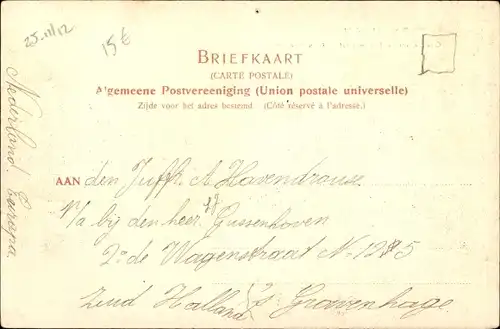 25-11/12
15€
BRIEFKAART
(CARTE POSTALE)
Algemeene Postvereeniging (Union postale universelle)
Zijde voor het adres bestemd (Côté réservé à l'adresse.)
Nederland. Europa.
AAN den Juffr. A
p/a bij den heer Gussenhoven
2de Wagenstraat N. 125
Zuid Holland s Gravenhage.